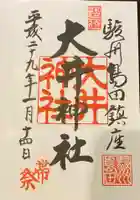 駿州島田鎮座
大井神社
大井
神社
平成二十九年一月十四日
帯
祭